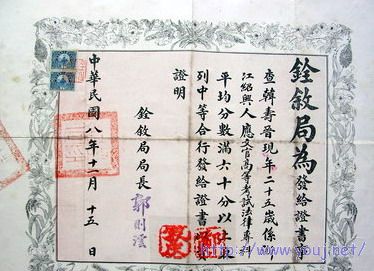 銓敘局為
發給證書事
查韓壽晉現年二十五歲係浙
江紹興人應文官高等考試法律專科
平均分數滿六十分以上
列中等合行發給證書以資
證明
銓敘局局長
郭則澐
中華民國八年十一月十五日
http://www.youj.net/